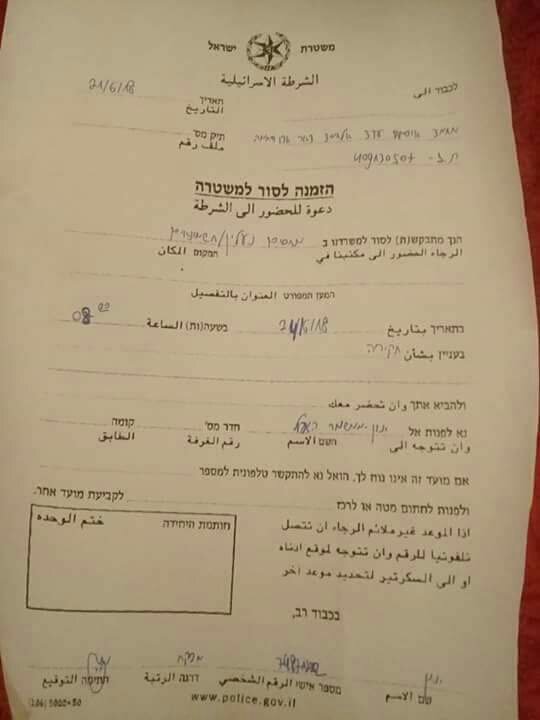 משטרת ישראל
الشرطة الاسرائيلية
לכבוד الى
תאריך 21/6/18
التاريخ
תיק מס'
ملف رقم
ת.ז-
הזמנה לסור למשטרה
دعوة للحضور الى الشرطة
הנך מתבקש(ת) לסור למשרדנו ב
הרجاء الحضور الى مكتبنا في המקום المكان
המען המפורט العنوان بالتفصيل
בתאריך بتاريخ 24/6/18 בשעה(ות) الساعة 08 00
בעניין بشأن חקירה
ולהביא אתך وان تحضر معك
נא לפנות אל חדר מס' קומה
وان تتوجه الى השם الاسم رقم الغرفة الطابق
אם מועד זה אינו נוח לך, הואל נא להתקשר טלפונית למספר
ולפנות לחתום מטה או לרכז לקביעת מועד אחר.
اذا الموعد غير ملائم الرجاء ان تتصل
تلفونيا للرقم وان تتوجه لموقع ادناه
او الى السكرتير لتحديد موعد آخر
חותמת היחידה ختم الوحده
בכבוד רב,
שם الاسم מספר אישי الرقم الشخصي דרגה الرتبة חתימה التوقيع
www.police.gov.il